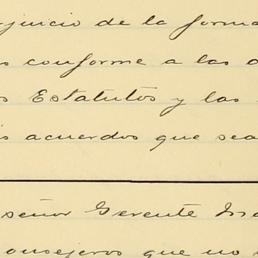 juicio de la forma
conforme a las
Estatutos y las
acuerdos que sea
señor Gerente
onsejeros que no